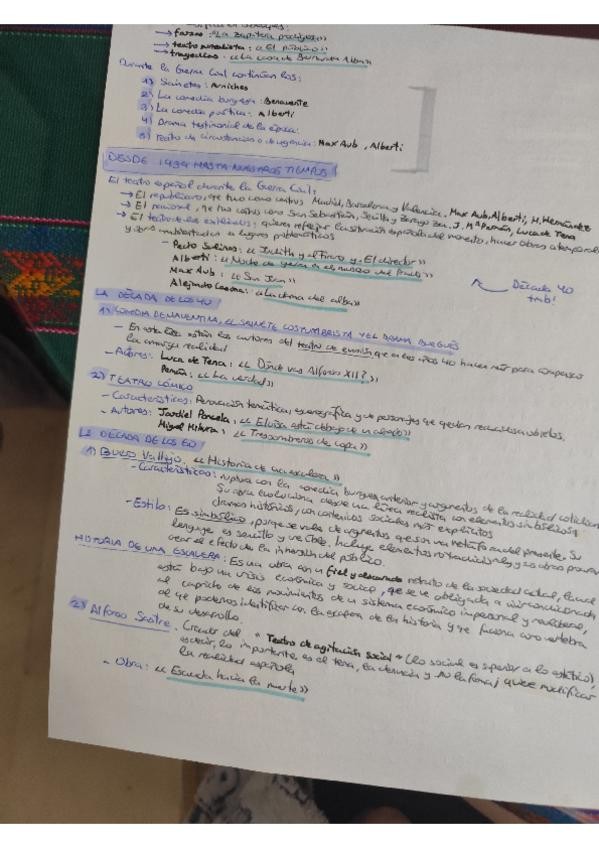 → farsas: «La zapatera prodigiosa»
→ teatro surrealista: «El público»
→ tragedias: «La casa de Bernarda Alba»
Durante la Guerra Civil continúan los:
1) Sainetes: Arniches
2) La comedia burguesa: Benavente
3) La comedia poética: Alberti
4) Drama testimonial de la época:
5) Teatro de circunstancias o de urgencia: Max Aub, Alberti
DESDE 1939 HASTA NUESTROS TIEMPOS
El teatro español durante la Guerra Civil:
→ El republicano, que tuvo como centros Madrid, Barcelona y Valencia. Max Aub, Alberti, M. Hernández
→ El nacional, que tuvo como centros San Sebastián, Sevilla y Zaragoza. J. Mª Pemán, Luca de Tena
→ El teatro de los exiliados, quienes reflejan la situación española del momento, hacen obras atemporales
y ambientadas en lugares problemáticos
- Pedro Salinas: «Judith y el tirano y El director»
Alberti: «Noche de guerra en el museo del Prado»
Max Aub: «San Juan»
Alejandro Casona: «La dama del alba»
Década 40 tmb!
LA DÉCADA DE LOS 40
1) COMEDIA BENAVENTINA, EL SAINETE COSTUMBRISTA Y EL DRAMA BURGUÉS
- En esta línea están los autores del teatro de evasión que en los años 40 hacen reír para compensar
la amarga realidad
- Autores: Luca de Tena: «¿Dónde vas Alfonso XII?»
Pemán: «La verdad»
2) TEATRO CÓMICO
- Características: Renovación temática, escenográfica y de personajes que quedan
- Autores: Jardiel Poncela: «Eloísa está debajo de un almendro»
Miguel Mihura: «Tres sombreros de copa»
LA DÉCADA DE LOS 50
1) Buero Vallejo. «Historia de una escalera»
- Características: ruptura con la comedia burguesa anterior y argumentos de la realidad cotidiana
Su obra evoluciona desde una línea realista con elementos simbólicos a
dramas históricos, con contenidos sociales más explícitos
- Estilo: Es simbólico, porque se vale de argumentos que son una metáfora del presente. Su
lenguaje es sencillo y verosímil. Incluye elementos no tradicionales y sus obras pueden
crear el efecto de la inmersión del público.
HISTORIA DE UNA ESCALERA: Es una obra con un fiel y descarnado retrato de la sociedad actual, la cual
está bajo una crisis económica y social, que se ve obligada a vivir condicionada
al capricho de los movimientos de un sistema económico impersonal y
al que podemos identificar con la escalera de la historia y que funciona como vertebra
de su desarrollo.
2) Alfonso Sastre. Creador del "Teatro de agitación social" (lo social es superior a lo estético)
es decir, lo importante es el tema, la denuncia y NO la forma; quiere modificar
la realidad española
- Obra: «Escuadra hacia la muerte»